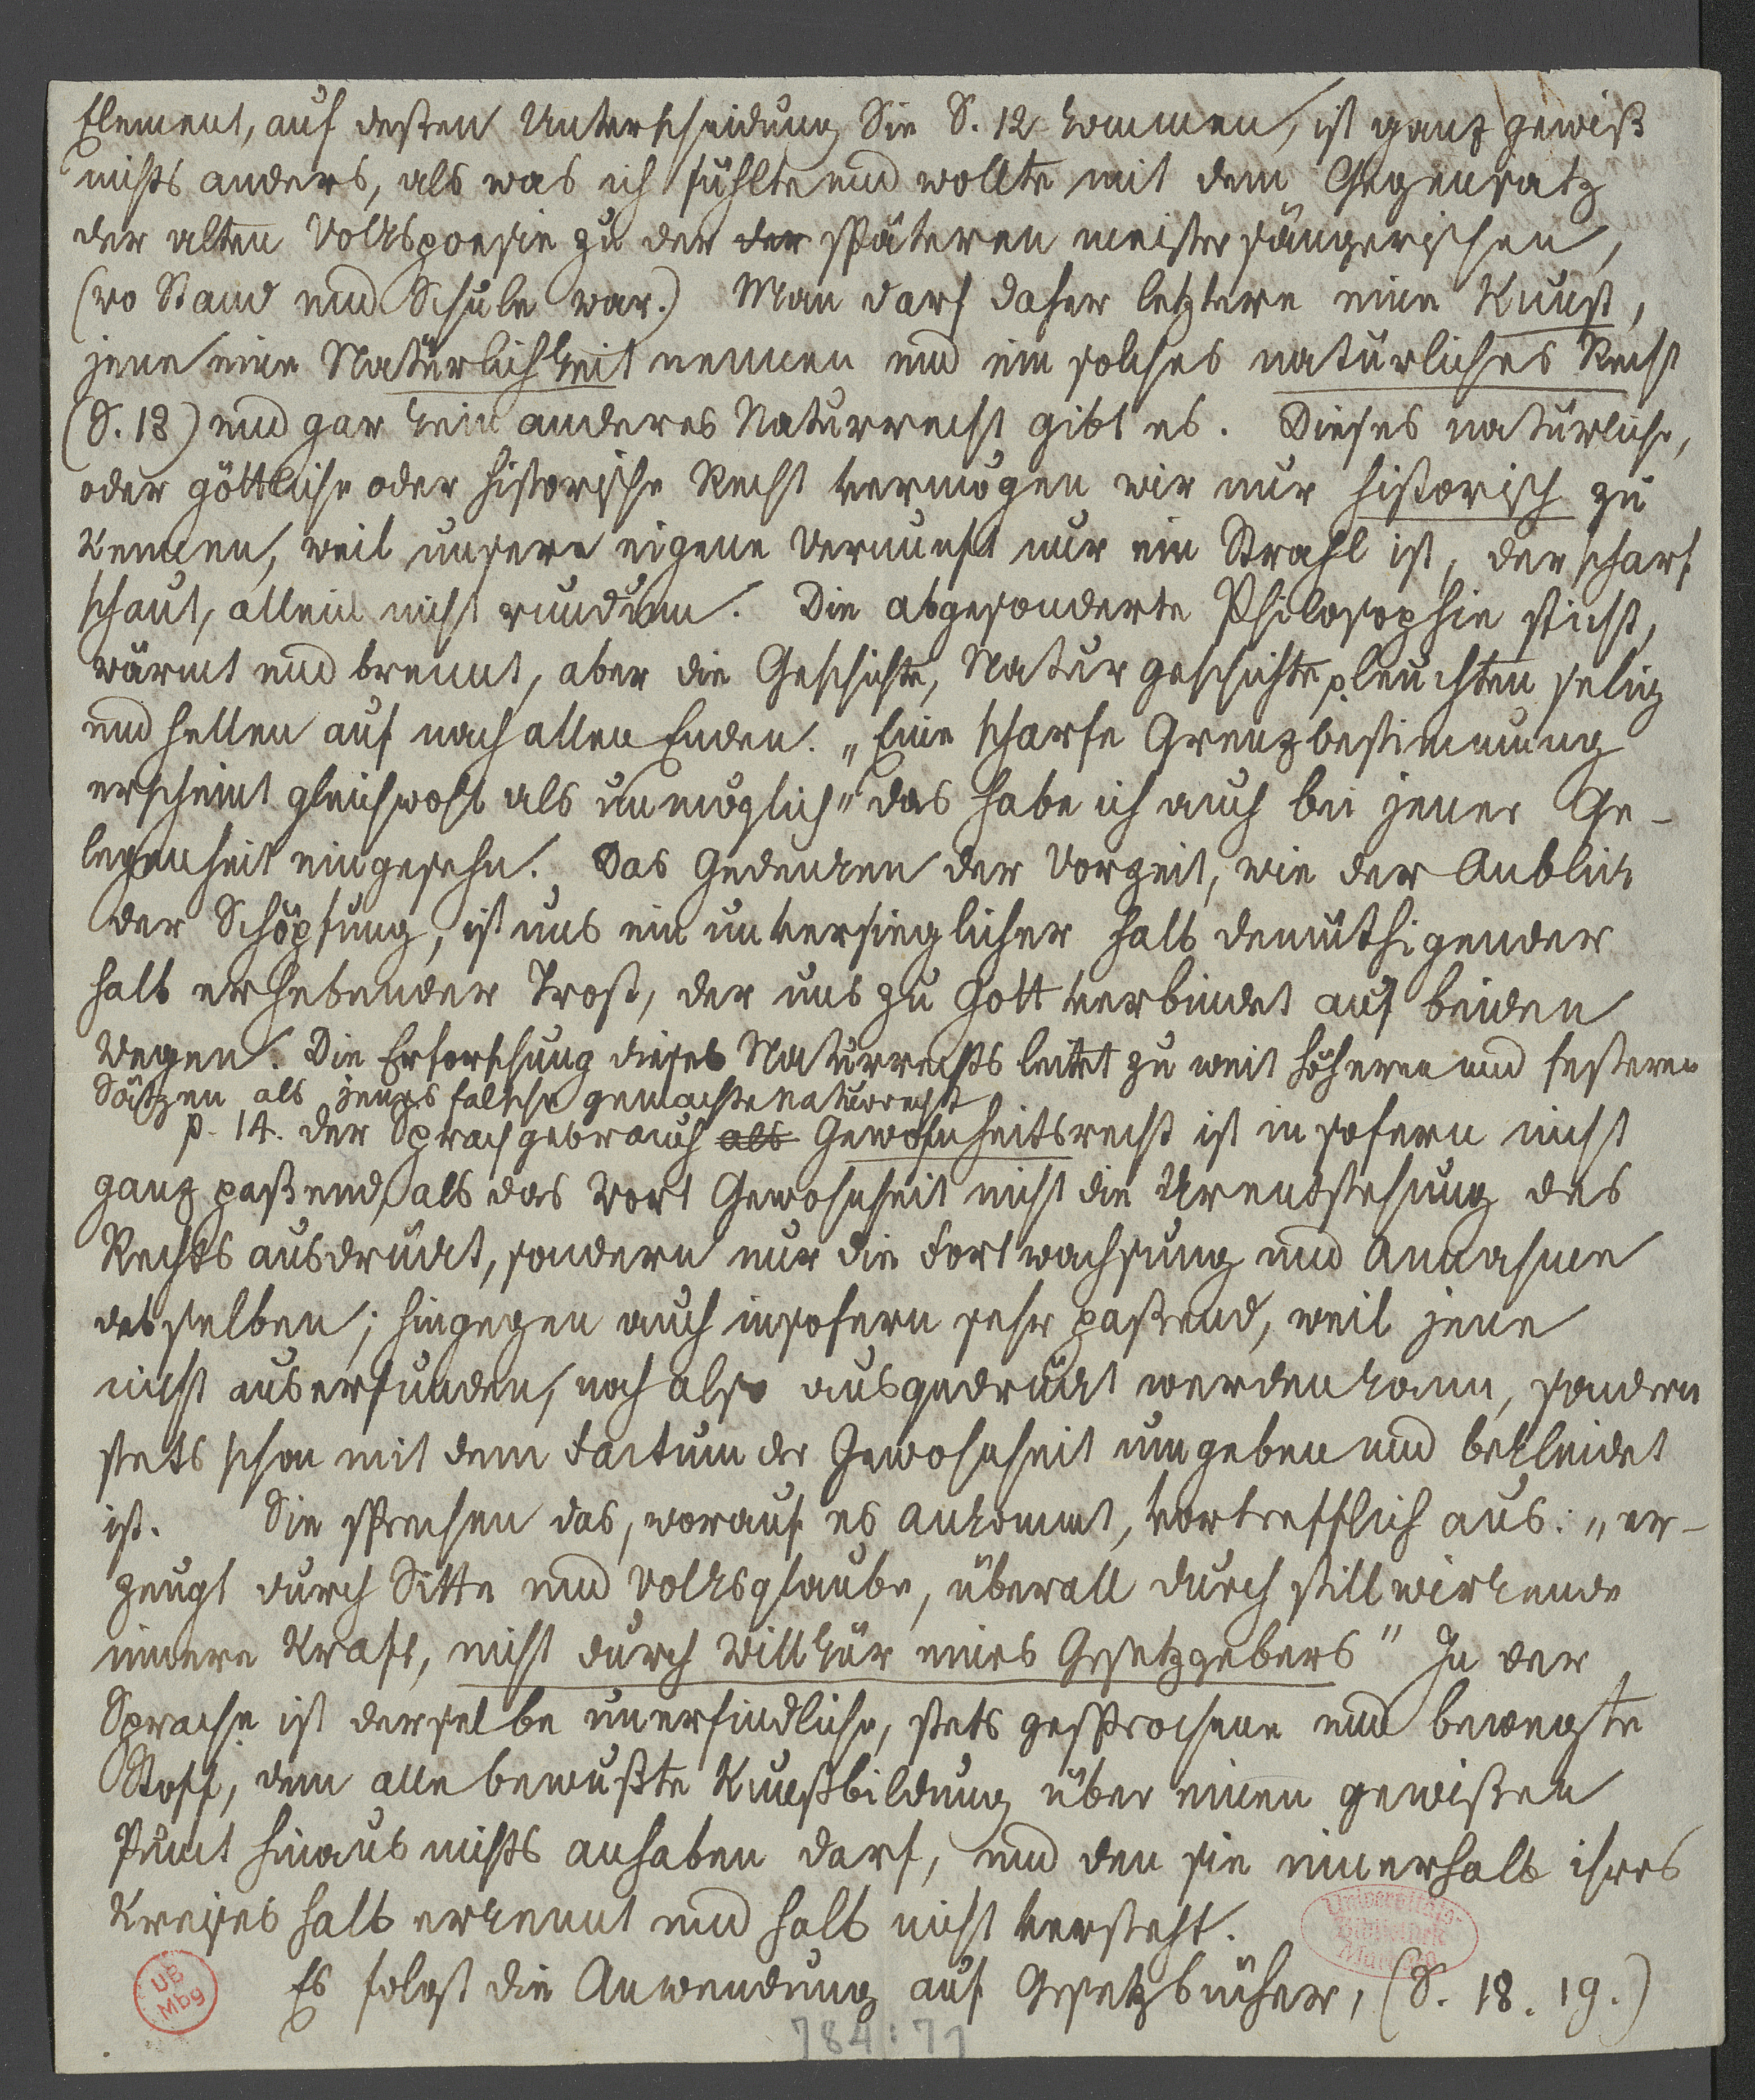 Element, auf deßen Unterscheidung Sie S. 12 kommen, ist ganz gewiß
nichts anders, als was ich fühlte und wollte mit dem Gegensatz
der alten Volkspoesie zu der der späteren meistersängerischen,
(wo Stand und Schule war.) Man darf daher letztere eine Kunst,
jene eine Natürlichkeit nennen und ein solches natürliches Recht
(S. 13) und gar kein anderes Naturrecht gibt es. Dieses natürliche,
oder göttliche oder historische Recht vermögen wir nur historisch zu
kennen, weil unsere eigene Vernunft nur ein Strahl ist, der scharf
schaut, allein nicht rundum. Die abgesonderte Philosophie sticht,
wärmt und brennt, aber die Geschichte, Naturgeschichte p leuchten selig
und hellen auf nach allen Enden. „Eine scharfe Grenzbestimmung
erscheint gleichwohl als unmöglich" das habe ich auch bei jener Ge-
legenheit eingesehn. Das Gedenken der Vorzeit, wie der Anblick
der Schöpfung, ist uns ein unversieglicher halb demüthigender
halb erhebender Trost, der uns zu Gott verbindet auf beiden
Wegen. Die Erforschung dieses Naturrechts leitet zu weit höheren und festeren
Sätzen als jenes falsche gemachte Naturrecht
p. 14. der Sprachgebrauch als Gewohnheitsrecht ist in sofern nicht
ganz paßend, als das Wort Gewohnheit nicht die Urentstehung des
Rechts ausdrückt, sondern nur die Fortwachsung und Annahme
desselben; hingegen auch insofern sehr paßend, weil jene
nicht auserfunden, noch also ausgedrückt werden kann, sondern
stets schon mit dem Factum der Gewohnheit umgeben und bekleidet
ist. Sie sprechen das, worauf es ankommt, vortrefflich aus: „er-
zeugt durch Sitte und Volksglaube, überall durch still wirkende
innere Kraft, nicht durch Willkür eines Gesetzgebers" In der
Sprache ist derselbe unerfindliche, stets gesprochene und bewegte
Stoff, dem alle bewußte Kunstbildung über einen gewißen
Punct hinaus nichts anhaben darf, und den sie innerhalb ihres
Kreises halb erkennt und halb nicht versteht.
Universitäts-
Bibliothek
Marburg
UB
Mbg
Es folgt die Anwendung auf Gesetzbücher, (S. 18. 19.)
784:71